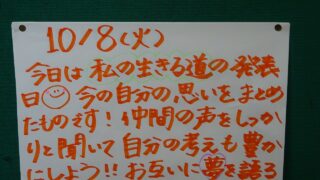 10/8(火)
今日は私の生きる道の発表
日☺今の自分の思いをまとめ
たものです！仲間の声をしっか
りと聞いて自分の考えも豊か
にしよう!!お互いに夢を語る